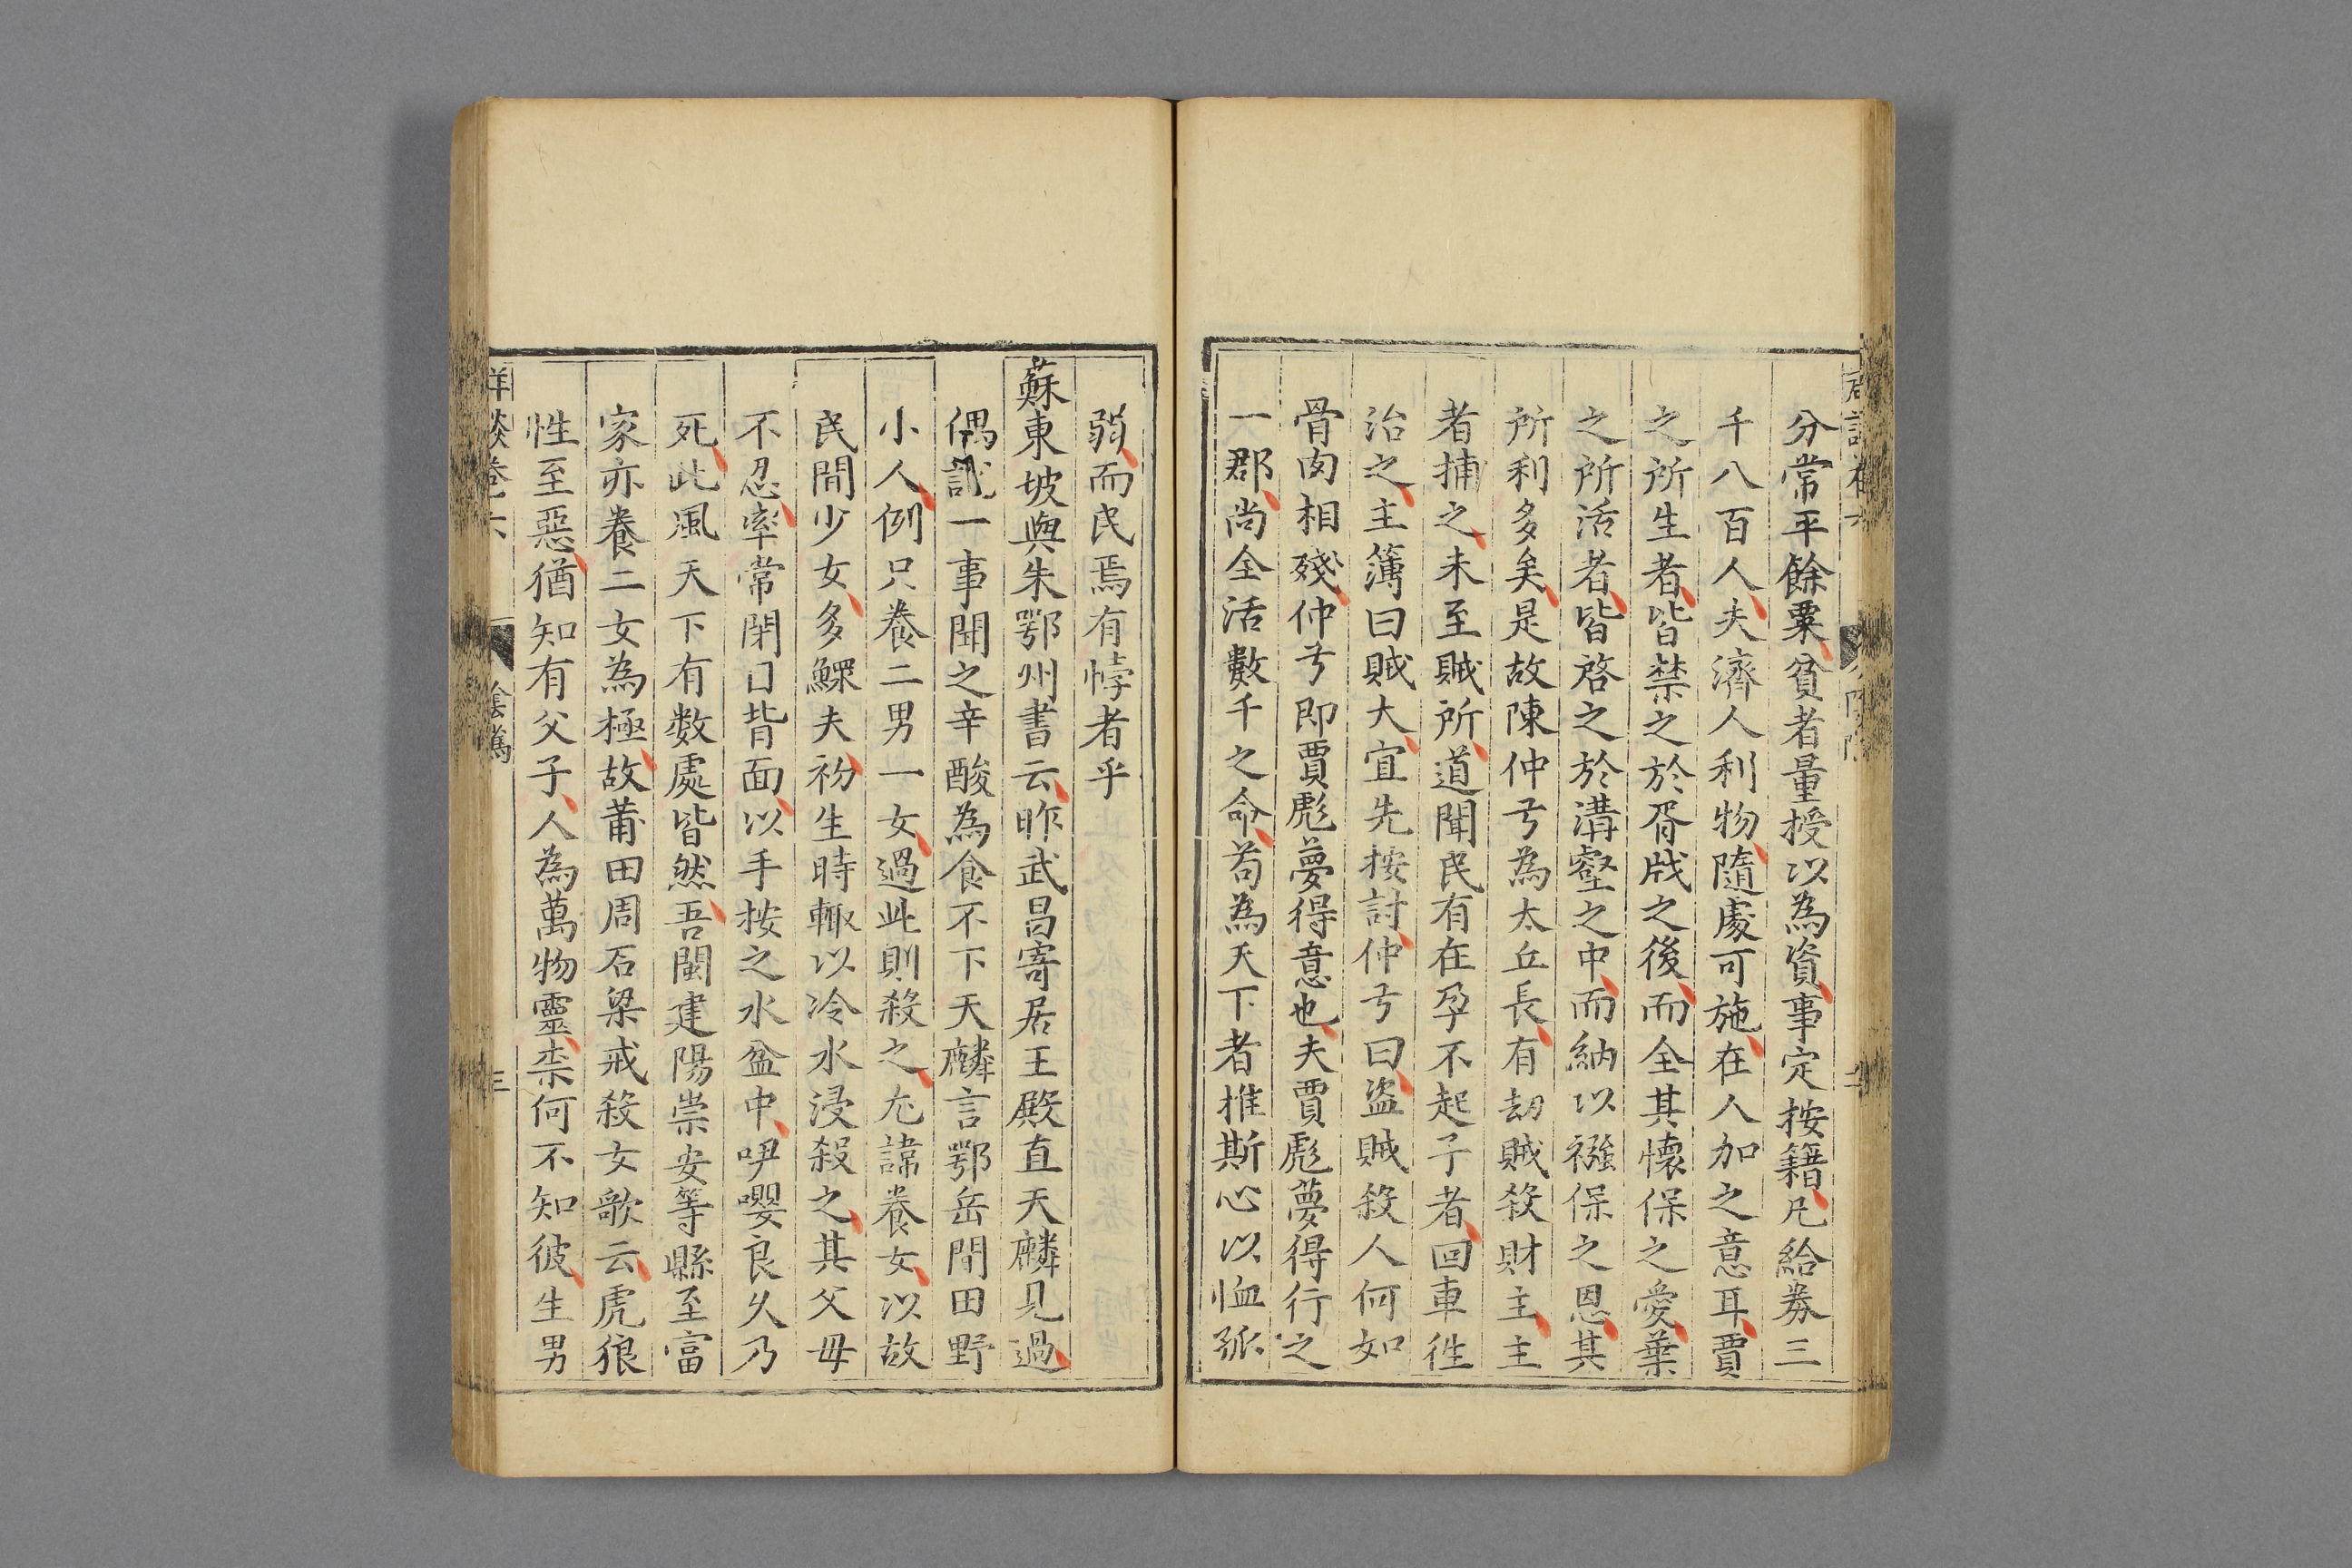 分常平餘粟貧者量授以為資事定按籍凡給券三
千八百人夫濟人利物隨處可施在人加之意耳賈
之所生者皆禁之於胥戕之後而全其懷保之愛葉
之所活者皆啓之於溝壑之中而納以襁保之恩其
所利多矣是故陳仲弓為太丘長有劫賊殺財主主
者捕之未至賊所道聞民有在孕不起子者回車徃
治之主簿曰賊大宜先按討仲弓曰盜賊殺人何如
骨肉相殘仲弓即賈彪夢得意也夫賈彪夢得行之
一郡尚全活數千之命苟為天下者推斯心以恤孤
弱而民焉有悖者乎
蘇東坡與朱鄂州書云昨武昌寄居王殿直天麟見過
偶說一事聞之辛酸為食不下天麟言鄂岳間田野
小人例只養二男一女過此則殺之尤諱養女以故
民間少女多鰥夫初生時輒以冷水浸殺之其父母
不忍率常閉目背面以手按之水盆中咿嚶良久乃
死此風天下有数處皆然吾閩建陽崇安等縣至富
家亦養二女為極故莆田周石梁戒殺女歌云虎狼
性至惡猶知有父子人為萬物靈柰何不知彼生男
卷六
三